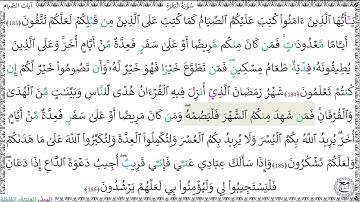 آيات الصيام
سُورَةُ البَقَرَةِ
يَٰٓأَيُّهَا ٱلَّذِينَ ءَامَنُوا۟ كُتِبَ عَلَيْكُمُ ٱلصِّيَامُ كَمَا كُتِبَ عَلَى ٱلَّذِينَ مِن قَبْلِكُمْ لَعَلَّكُمْ تَتَّقُونَ (183)
أَيَّامًا مَّعْدُودَٰتٍ ۚ فَمَن كَانَ مِنكُم مَّرِيضًا أَوْ عَلَىٰ سَفَرٍ فَعِدَّةٌ مِّنْ أَيَّامٍ أُخَرَ ۚ وَعَلَى ٱلَّذِينَ
يُطِيقُونَهُۥ فِدْيَةٌ طَعَامُ مِسْكِينٍ ۖ فَمَن تَطَوَّعَ خَيْرًا فَهُوَ خَيْرٌ لَّهُۥ ۚ وَأَن تَصُومُوا۟ خَيْرٌ لَّكُمْ ۖ إِن
كُنتُمْ تَعْلَمُونَ (184) شَهْرُ رَمَضَانَ ٱلَّذِىٓ أُنزِلَ فِيهِ ٱلْقُرْءَانُ هُدًى لِّلنَّاسِ وَبَيِّنَٰتٍ مِّنَ ٱلْهُدَىٰ
وَٱلْفُرْقَانِ ۚ فَمَن شَهِدَ مِنكُمُ ٱلشَّهْرَ فَلْيَصُمْهُ ۖ وَمَن كَانَ مَرِيضًا أَوْ عَلَىٰ سَفَرٍ فَعِدَّةٌ مِّنْ أَيَّامٍ
أُخَرَ ۗ يُرِيدُ ٱللَّهُ بِكُمُ ٱلْيُسْرَ وَلَا يُرِيدُ بِكُمُ ٱلْعُسْرَ وَلِتُكْمِلُوا۟ ٱلْعِدَّةَ وَلِتُكَبِّرُوا۟ ٱللَّهَ عَلَىٰ مَا هَدَىٰكُمْ
وَلَعَلَّكُمْ تَشْكُرُونَ (185) وَإِذَا سَأَلَكَ عِبَادِى عَنِّى فَإِنِّى قَرِيبٌ ۖ أُجِيبُ دَعْوَةَ ٱلدَّاعِ إِذَا دَعَانِ ۖ
فَلْيَسْتَجِيبُوا۟ لِى وَلْيُؤْمِنُوا۟ بِى لَعَلَّهُمْ يَرْشُدُونَ (186)